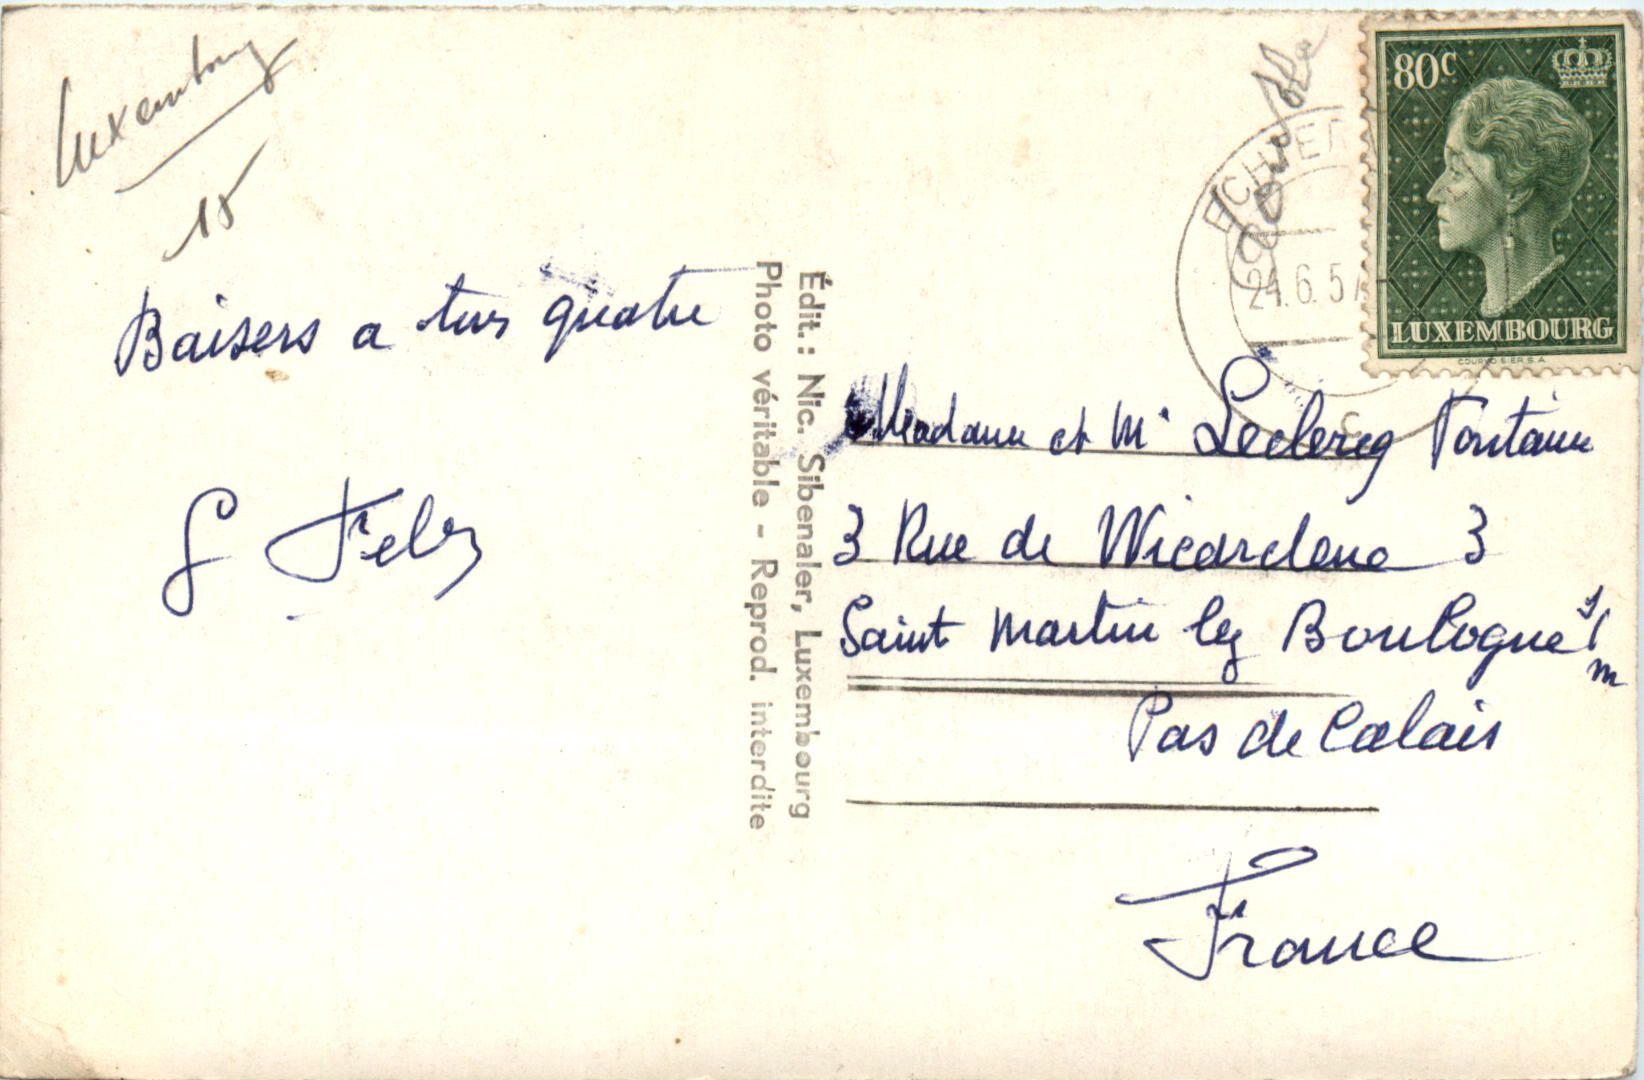 Luxembourg
15
Baisers a tous quatre
Édit.: Nic. Sibenaler, Luxembourg
Photo véritable - Reprod. interdite
80c
LUXEMBOURG
COURVOISIER S.A.
ECHTER
24.6.57
Madame et Mr Leclercq Fontaine
3 Rue de Wicardenne 3
Saint Martin lez Boulogne s/
m
Pas de Calais
France